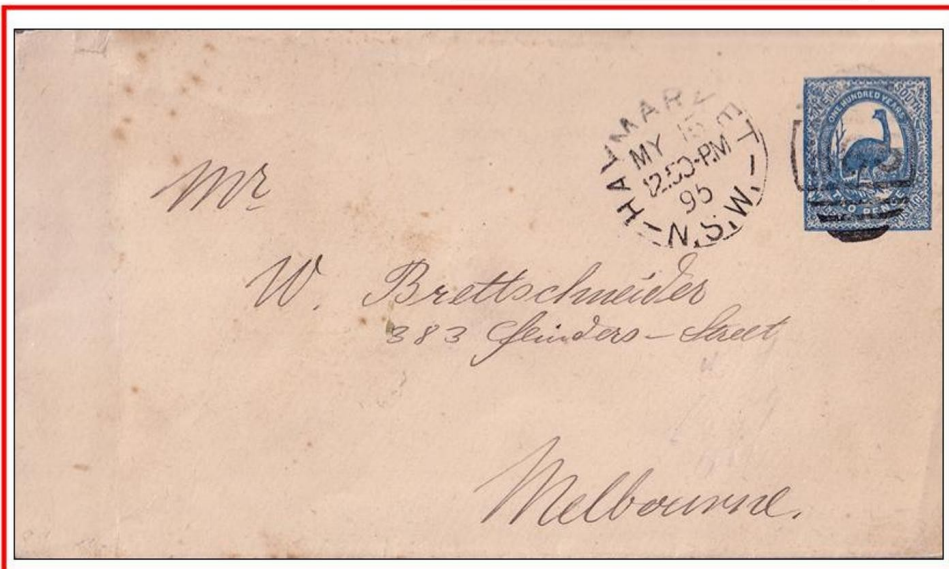 HAYMARKET
MY 15
12.50 PM
95
N.S.W
ONE HUNDRED YEARS
TWO PENCE
Mr
W. Brettschneider
383 Flinders - Street
Melbourne.